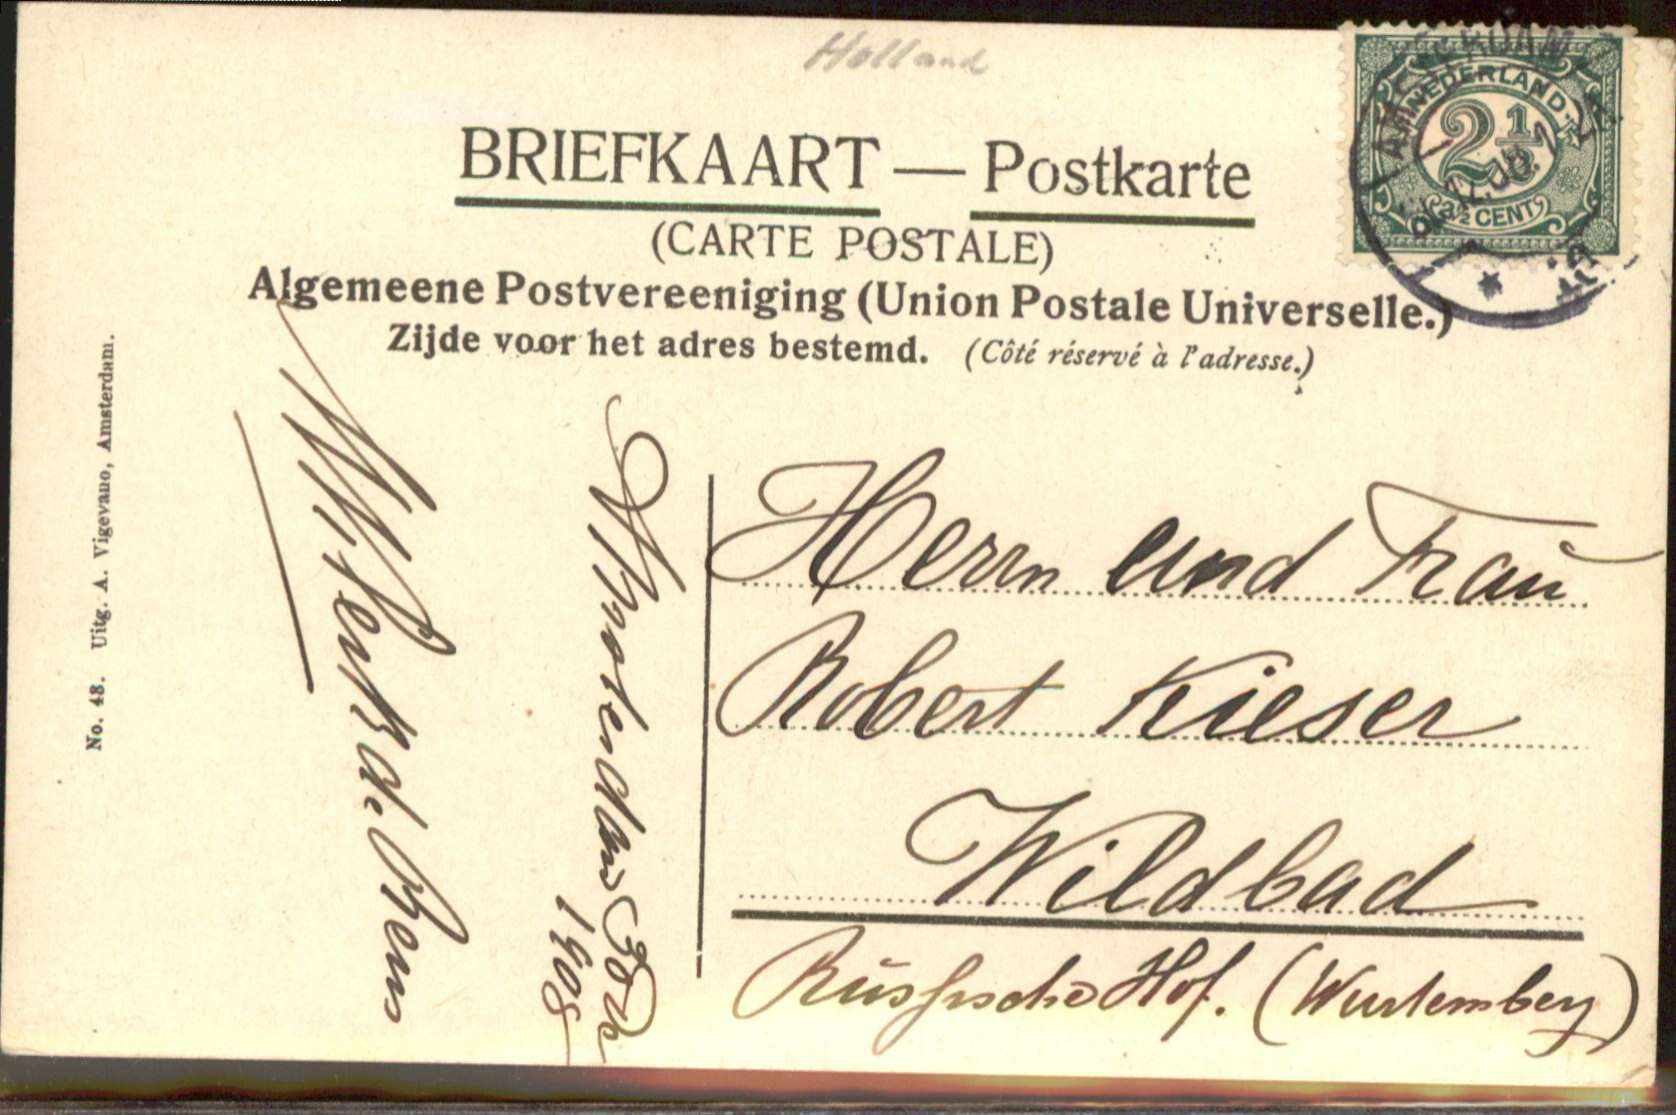 Holland
BRIEFKAART — Postkarte
(CARTE POSTALE)
Algemeene Postvereeniging (Union Postale Universelle.)
Zijde voor het adres bestemd. (Côté réservé à l'adresse.)
NEDERLAND
2½
2½ CENT
No. 48. Uitg. A. Vigevano, Amsterdam.
Amsterdam
1905
Herrn und Frau
Robert Kieser
Wildbad
Russische Hof. (Wurtemberg)